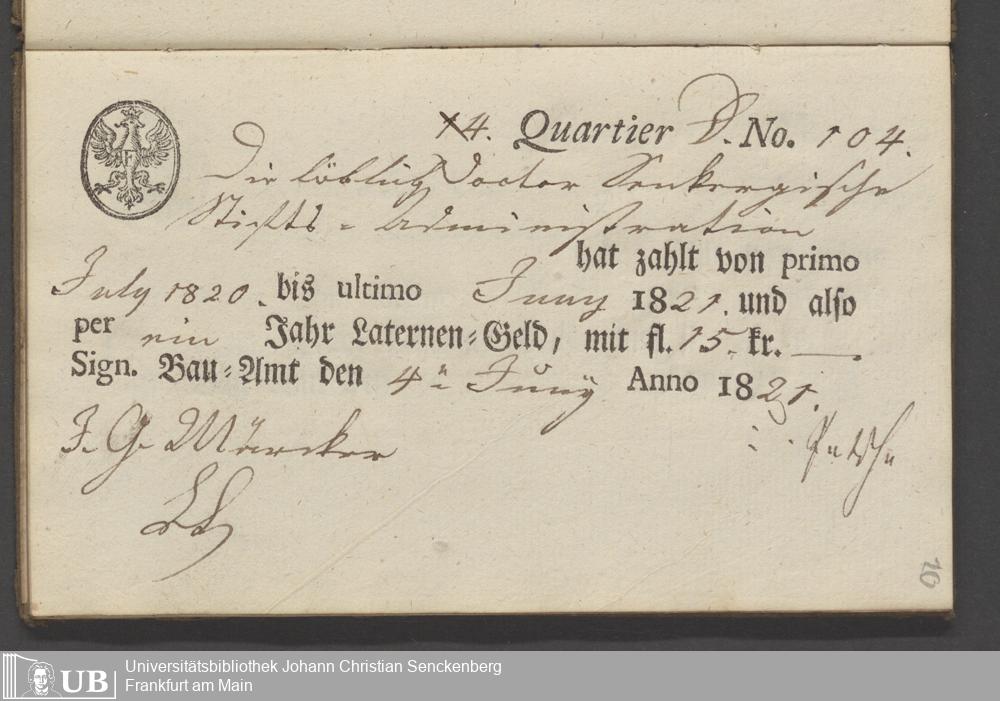 14. Quartier D. No. 104.
Die löblich Doctor Senkergische
Stifts = Administration
hat zahlt von primo
July 1820. bis ultimo Juny 1821. und also
per ein Jahr Laternen=Geld, mit fl. 15. kr. —.
Sign. Bau=Amt den 4n Juny Anno 1821.
J. G. Märcker
10
Universitätsbibliothek Johann Christian Senckenberg
Frankfurt am Main
UB